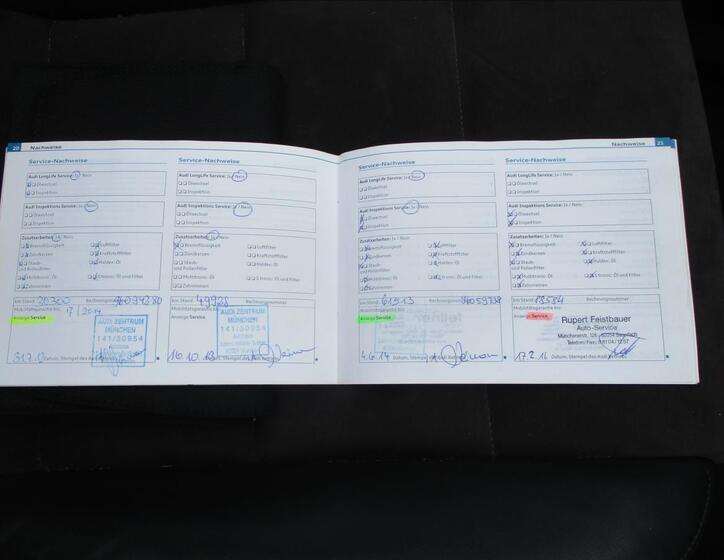 20 Nachweise
Service-Nachweise
Audi LongLife Service: Ja / Nein
Ölwechsel
Inspektion
Audi Inspektions Service: Ja / Nein
Ölwechsel
Inspektion
Zusatzarbeiten: Ja / Nein
Bremsflüssigkeit Luftfilter
Zündkerzen Kraftstofffilter
Staub- Haldex: Öl
und Pollenfilter
Multitronic: Öl S tronic: Öl und Filter
Zahnriemen
km-Stand: 30300 Rechnungsnummer
Mobilitätsgarantie bis:
Anzeige Service
AUDI ZENTRUM
MÜNCHEN
141/30954
Datum, Stempel des Audi Betriebs
Service-Nachweise
Audi LongLife Service: Ja / Nein
Ölwechsel
Inspektion
Audi Inspektions Service: Ja / Nein
Ölwechsel
Inspektion
Zusatzarbeiten: Ja / Nein
Bremsflüssigkeit Luftfilter
Zündkerzen Kraftstofffilter
Staub- Haldex: Öl
und Pollenfilter
Multitronic: Öl S tronic: Öl und Filter
Zahnriemen
km-Stand: 49928 Rechnungsnummer
Mobilitätsgarantie bis:
Anzeige Service
AUDI ZENTRUM
MÜNCHEN
141/30954
16.10.13 Datum, Stempel des Audi Betriebs
Nachweise 21
Service-Nachweise
Audi LongLife Service: Ja / Nein
Ölwechsel
Inspektion
Audi Inspektions Service: Ja / Nein
Ölwechsel
Inspektion
Zusatzarbeiten: Ja / Nein
Bremsflüssigkeit Luftfilter
Zündkerzen Kraftstofffilter
Staub- Haldex: Öl
und Pollenfilter
Multitronic: Öl S tronic: Öl und Filter
Zahnriemen
km-Stand: 61513 Rechnungsnummer
Mobilitätsgarantie bis:
Anzeige Service
4.6.14 Datum, Stempel des Audi Betriebs
Service-Nachweise
Audi LongLife Service: Ja / Nein
Ölwechsel
Inspektion
Audi Inspektions Service: Ja / Nein
Ölwechsel
Inspektion
Zusatzarbeiten: Ja / Nein
Bremsflüssigkeit Luftfilter
Zündkerzen Kraftstofffilter
Staub- Haldex: Öl
und Pollenfilter
Multitronic: Öl S tronic: Öl und Filter
Zahnriemen
km-Stand: Rechnungsnummer
Mobilitätsgarantie bis:
Anzeige Service
Rupert Feistbauer
Auto-Service
17.2.16 Datum, Stempel des Audi Betriebs